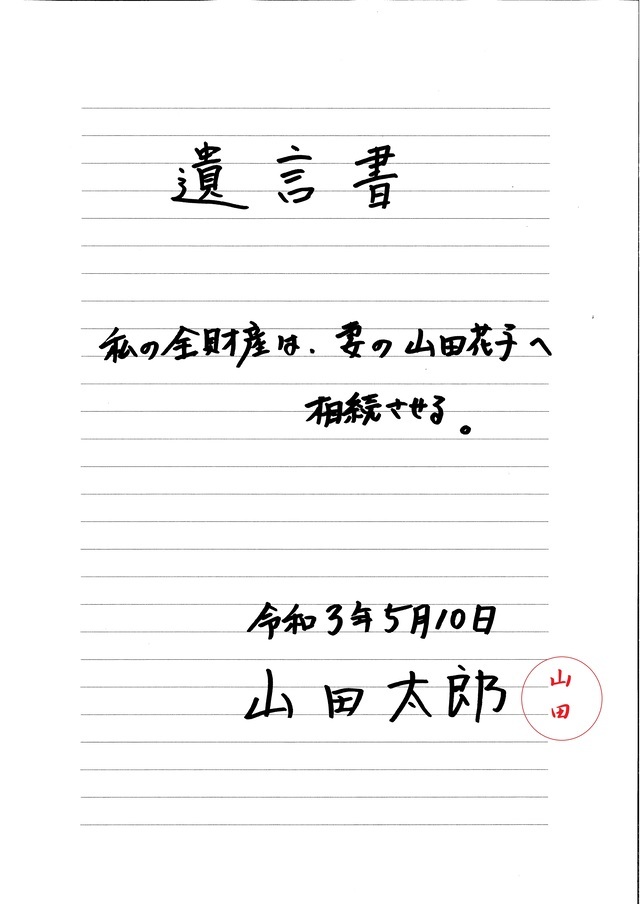 遺言書
私の全財産は、妻の山田花子へ
相続させる。
令和3年5月10日
山田太郎
山田